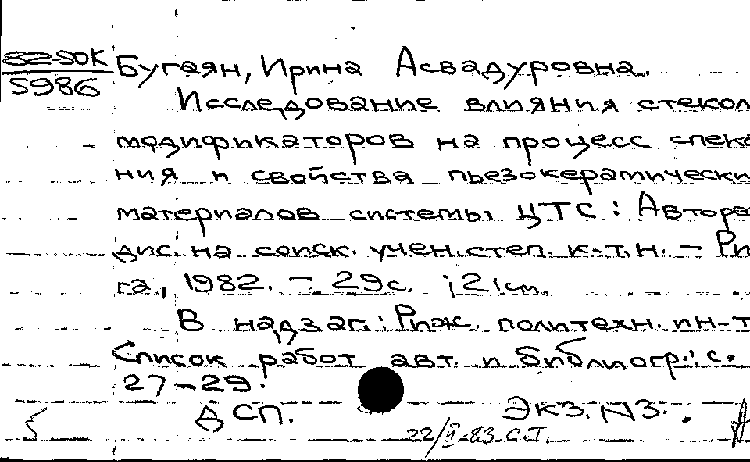 82-50К
5986
Бугаян, Ирина Асвадуровна.
Исследование влияния стекол
модификаторов на процесс спека
ния и свойства пьезокерамически
материалов системы ЦТС : Авторе
дис. на соиск. учен. степ. к.т.н. – Ри
га, 1982. – 29с. ; 21см.
В надзаг.: Риж. политехн. ин-т
Список работ авт. и библиогр.: с.
27–29.
ДСП. Экз. №3.
22/II-83 С.Т.